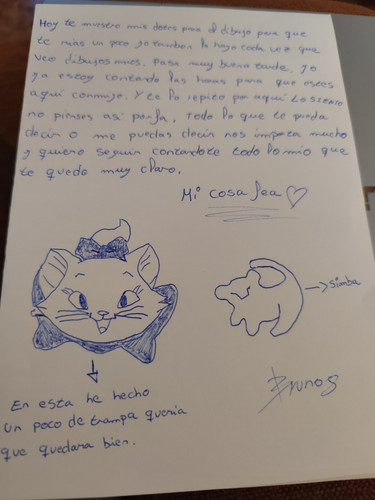 Hoy te muestro mis dotes para el dibujo para que
te rias un poco yo tambien lo hago cada vez que
veo dibujos mios. Pasa muy buena tarde, yo
ya estoy contando las horas para que estes
aqui conmigo. Y te lo repito por aqui LO SIENTO
no pienses asi porfa, todo lo que te pueda
decir o me puedas decir nos importa mucho
y quiero seguir contandote todo lo mio que
te quede muy claro.
Mi cosa fea
→ simba
Brunos
En esta he hecho
un poco de trampa queria
que quedara bien.